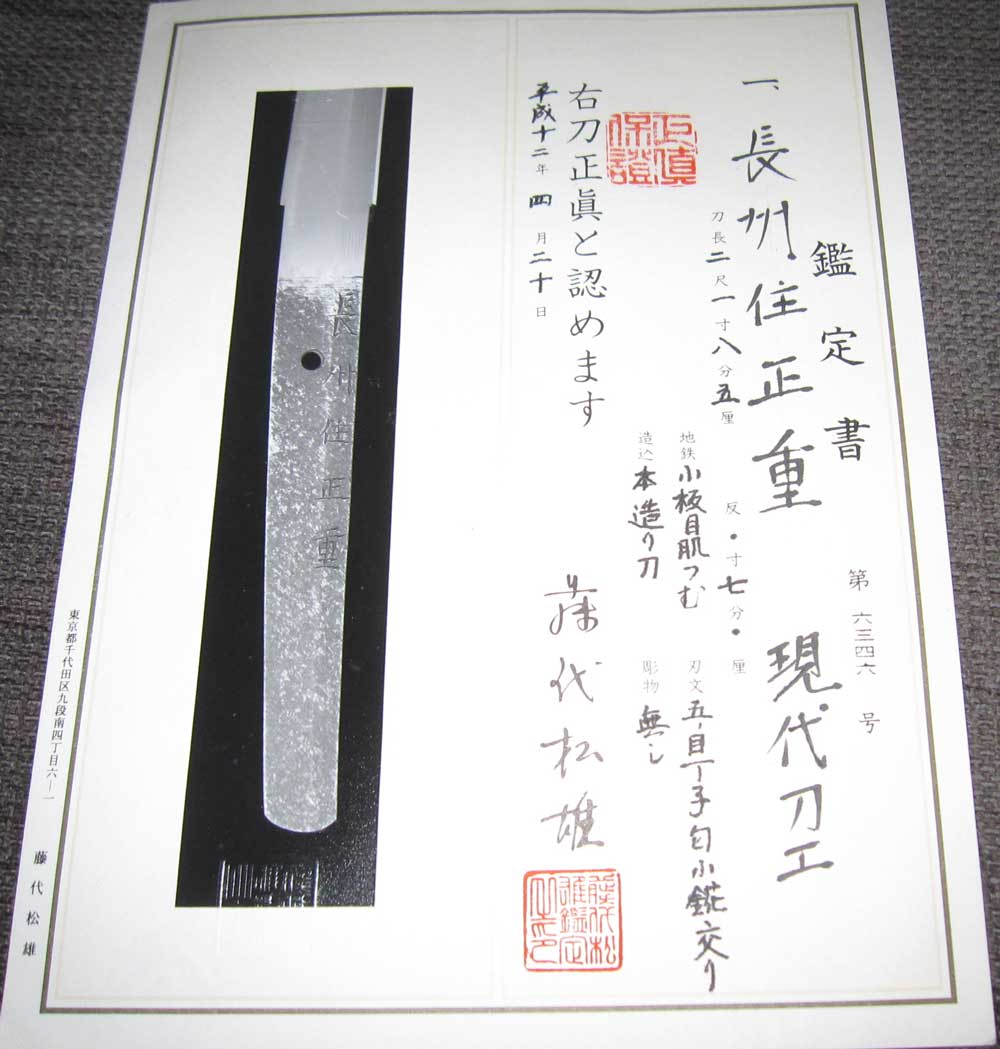 鑑定書
第六三四六号
一、長州住正重 現代刀工
刀長二尺一寸八分五厘 反・寸七分・厘
地鉄小板目肌つむ 刃文五ノ目丁子匂小錵交り
造込本造り刀 彫物無し
正真保證
右刀正眞と認めます
平成十二年四月二十日
藤代松雄
藤代松雄鑑定之印
長州住正重
東京都千代田区九段南四丁目六―一 藤代松雄